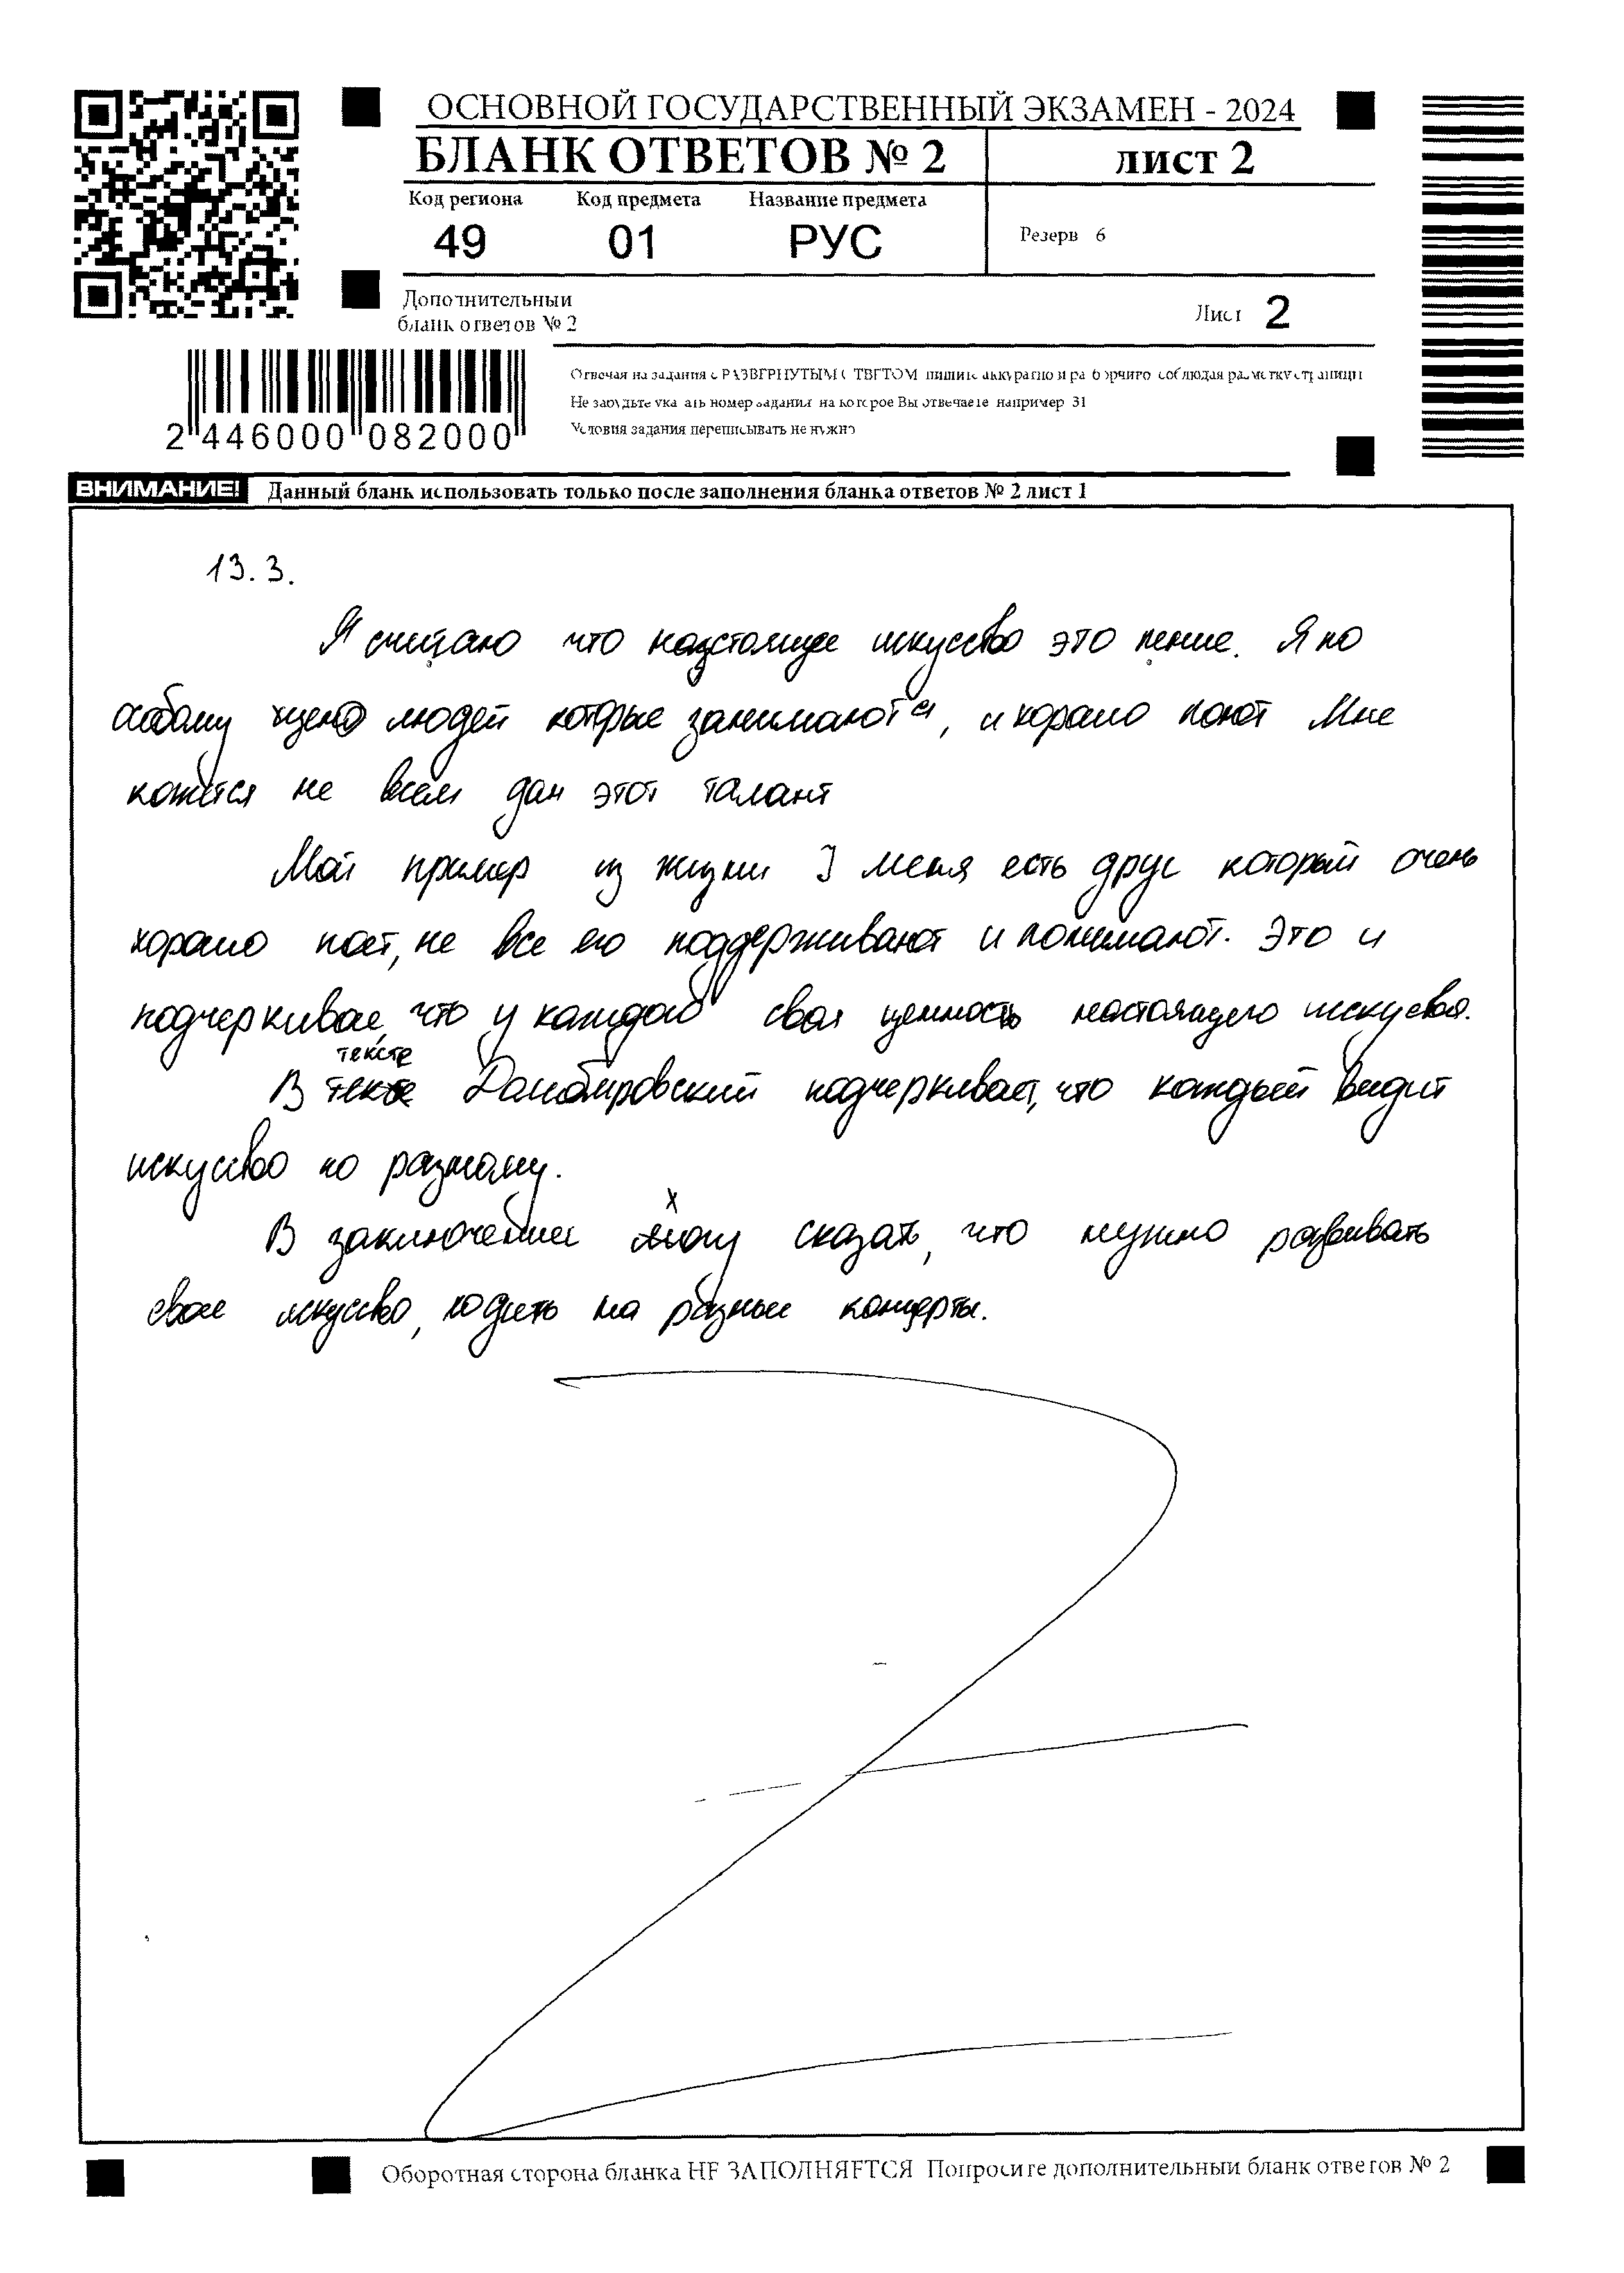 ОСНОВНОЙ ГОСУДАРСТВЕННЫЙ ЭКЗАМЕН - 2024
БЛАНК ОТВЕТОВ № 2
лист 2
Код региона Код предмета Название предмета
49 01 РУС
Резерв 6
Дополнительный
бланк ответов № 2
Лист 2
Отвечая на задания с РАЗВЕРНУТЫМ ОТВЕТОМ пишите аккуратно и разборчиво соблюдая разметку страницы
Не забудьте указать номер задания на которое Вы отвечаете например 31
Условия задания переписывать не нужно
2 446000 082000
ВНИМАНИЕ! Данный бланк использовать только после заполнения бланка ответов № 2 лист 1
13.3.
Я считаю что настоящее искусство это пение. Я по
особому ценю людей которые занимаются, и хорошо поют Мне
кажется не всем дан этот талант
Мой пример из жизни У меня есть друг который очень
хорошо поет, не все его поддерживают и понимают. Это и
подчеркивае, что у каждого своя ценность настоящего искуства.
тексте
В Домбировский подчеркивает, что каждый видит
искуство по разному.
В заключении хочу сказать, что нужно развивать
свое искуство, ходить на разные концерты.
Оборотная сторона бланка НЕ ЗАПОЛНЯЕТСЯ Попросите дополнительный бланк ответов № 2